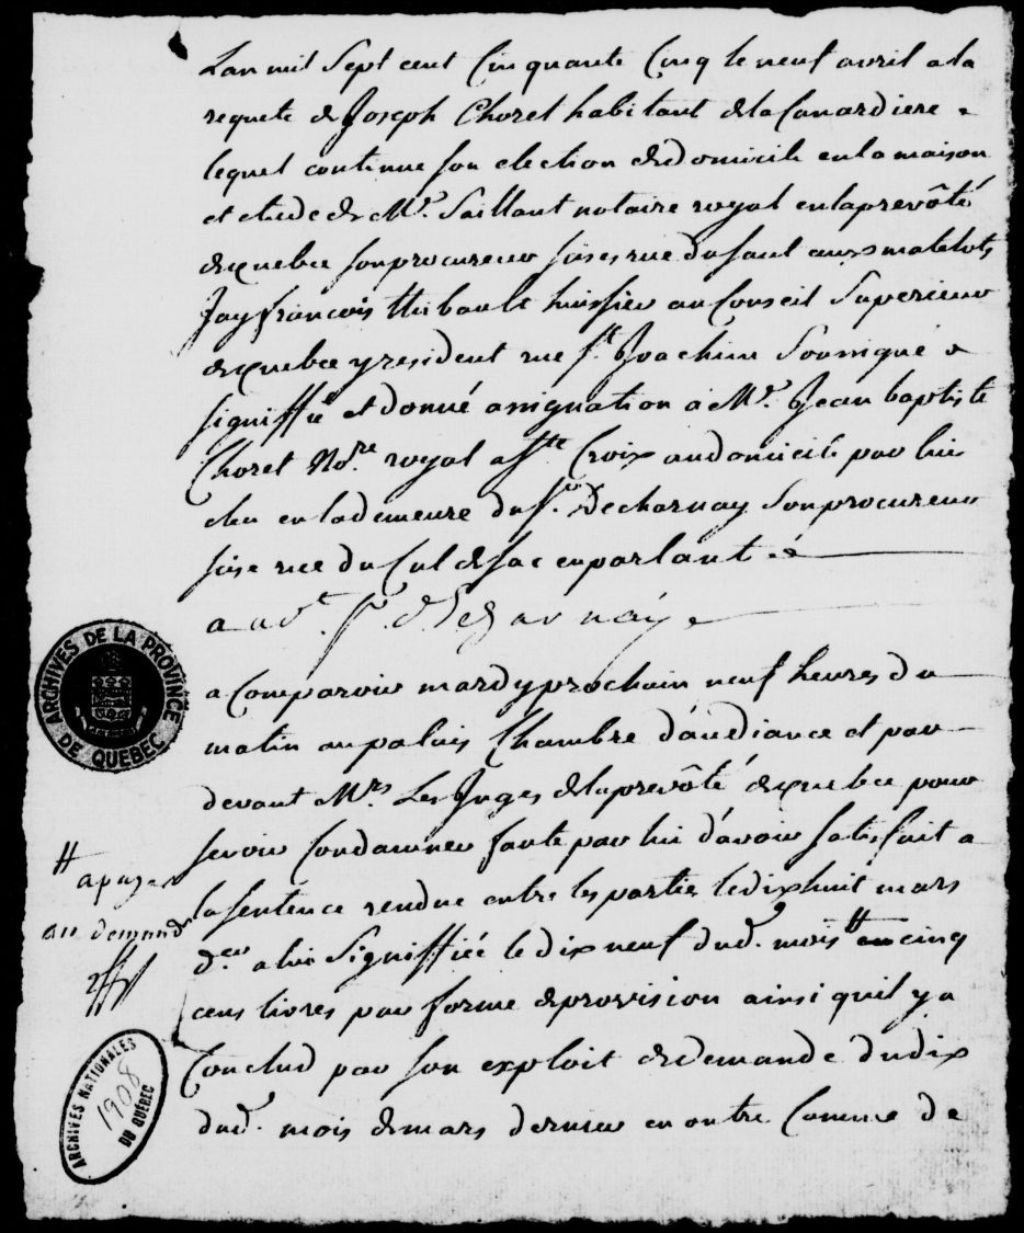 Lan mil Sept cent Cinquante Cinq le neuf avril a la
requete de Joseph Choret habitant de la Canardiere
lequel continue son election de domicile en la maison
et etude de Mr. Saillant notaire royal en la prevôté
de quebec son procureur sise rue du Saul aux matelots
Jay françois thibault huissier au Conseil Superieur
de quebec y resident rue St. Joachim Soussigné
signiffié et donné assignation a Mr. Jean baptiste
Choret Nore. royal a Ste Croix au domicile par lui
elu en la demeure du Sr. Decharnay Son procureur
sise rue du Cul de Sac en parlant a
a
a Comparoir mardy prochain neuf heures du
matin au palais Chambre d'audiance et par
devant Mrs. Les Juges de la prevôté de quebec pour
se voir Condamner faute par lui d'avoir satisfait a
la sentence rendue entre les partie le dix huit mars
der a lui Signiffiée le dix neuf dud. mois # cinq
cens livres par forme de provision ainsi quil y a
Conclud par son exploit de demande du dix
dud. mois de mars dernier en outre Comme de
# a payer
au demandr
ARCHIVES DE LA PROVINCE DE QUEBEC
ARCHIVES NATIONALES DU QUÉBEC
1908